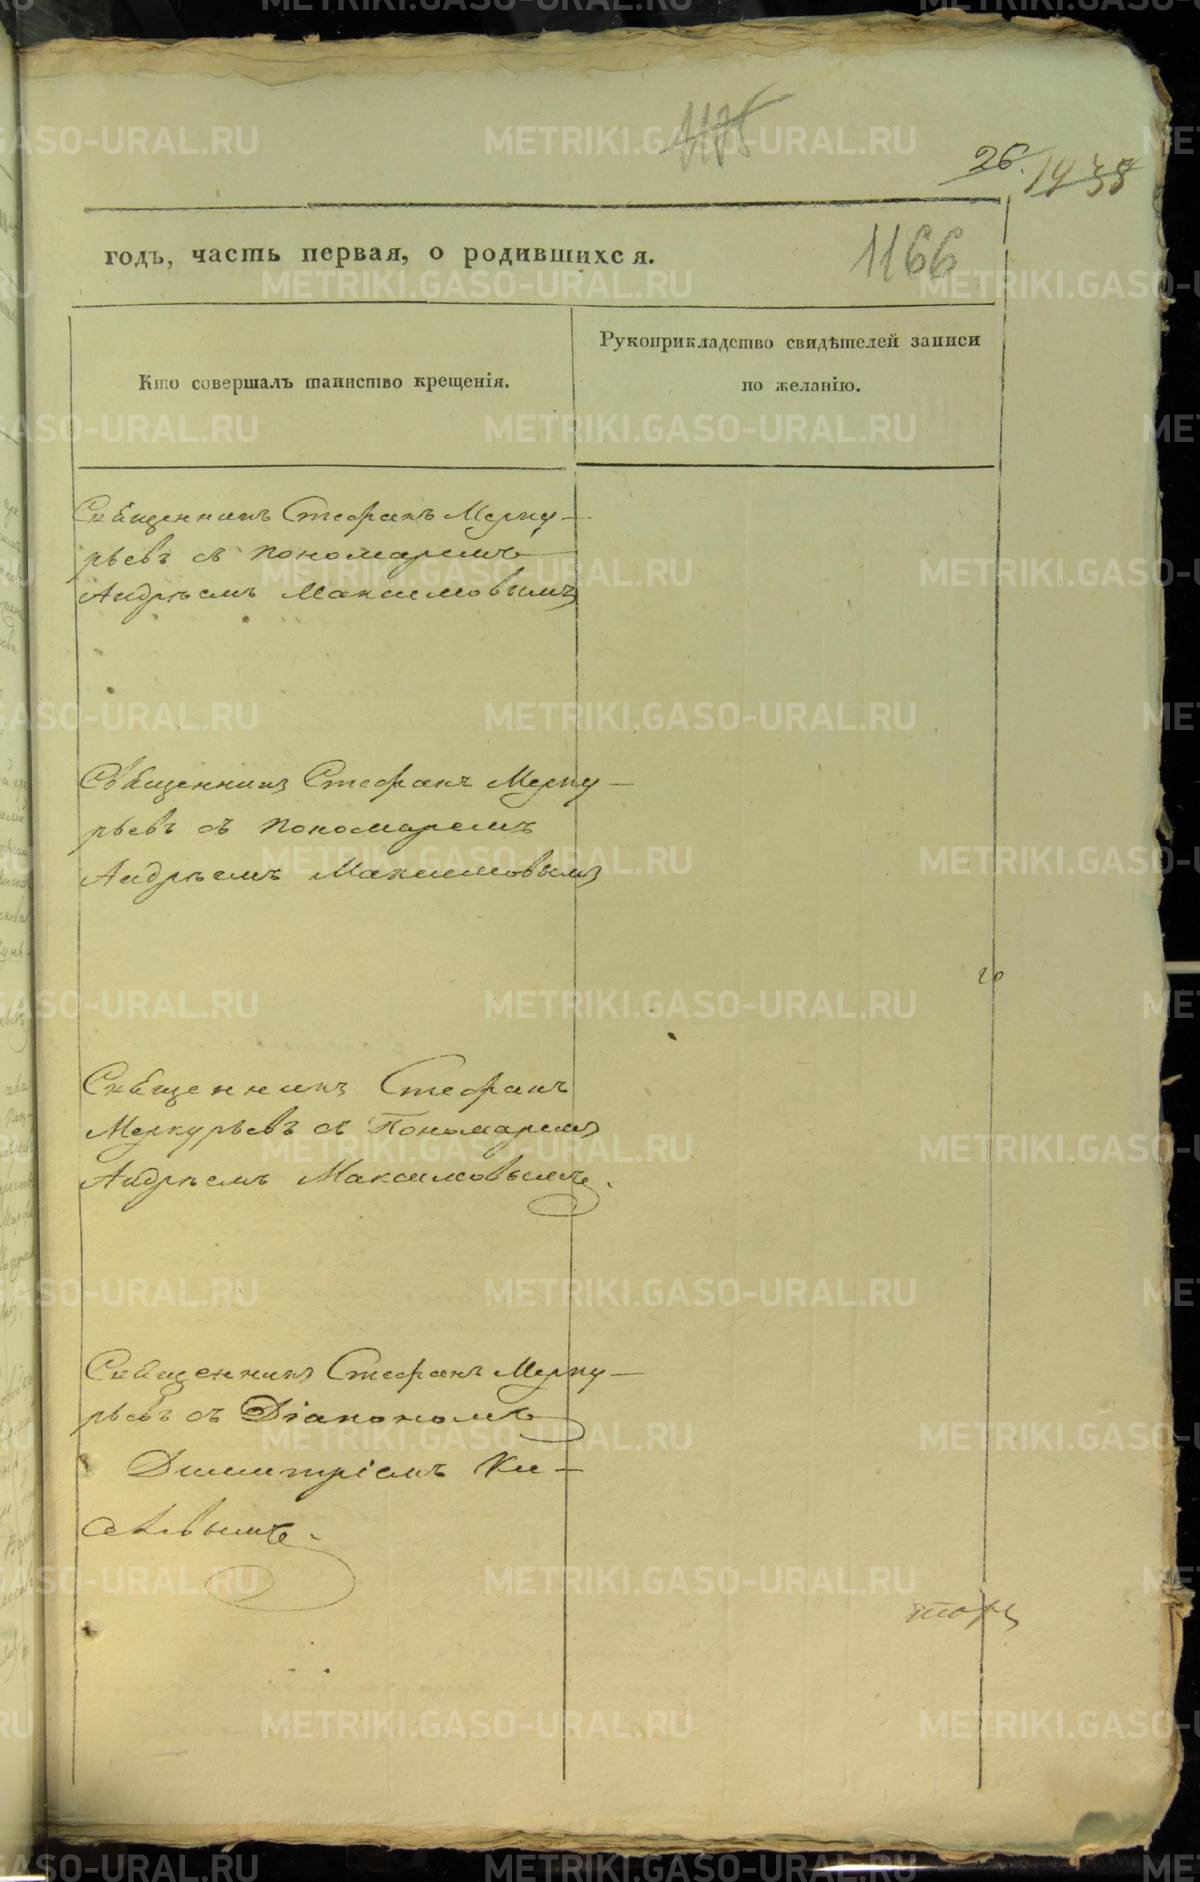 1175
26.
1438
годъ, часть первая, о родившихся.
1166
Кто совершалъ таинство крещенія.
Рукоприкладство свидѣтелей записи
по желанію.
Священникъ Стефанъ Мерку-
рьевъ съ пономаремъ
Андрѣемъ Максимовымъ
Священникъ Стефанъ Мерку-
рьевъ съ пономаремъ
Андрѣемъ Максимовымъ
го
Священникъ Стефанъ
Меркурьевъ съ Пономаремъ
Андрѣемъ Максимовымъ.
Священникъ Стефанъ Мерку-
рьевъ съ Діакономъ
Димитріемъ Ки-
селевымъ.
METRIKI.GASO-URAL.RU